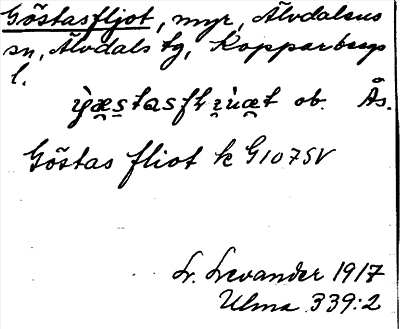 Göstasfljot, myr, Älvdalens
sn, Älvdals tg, Kopparbergs
l.
ob. Ås.
Göstas fliot k G107SV
Lr. Levander 1917
Ulma 339:2